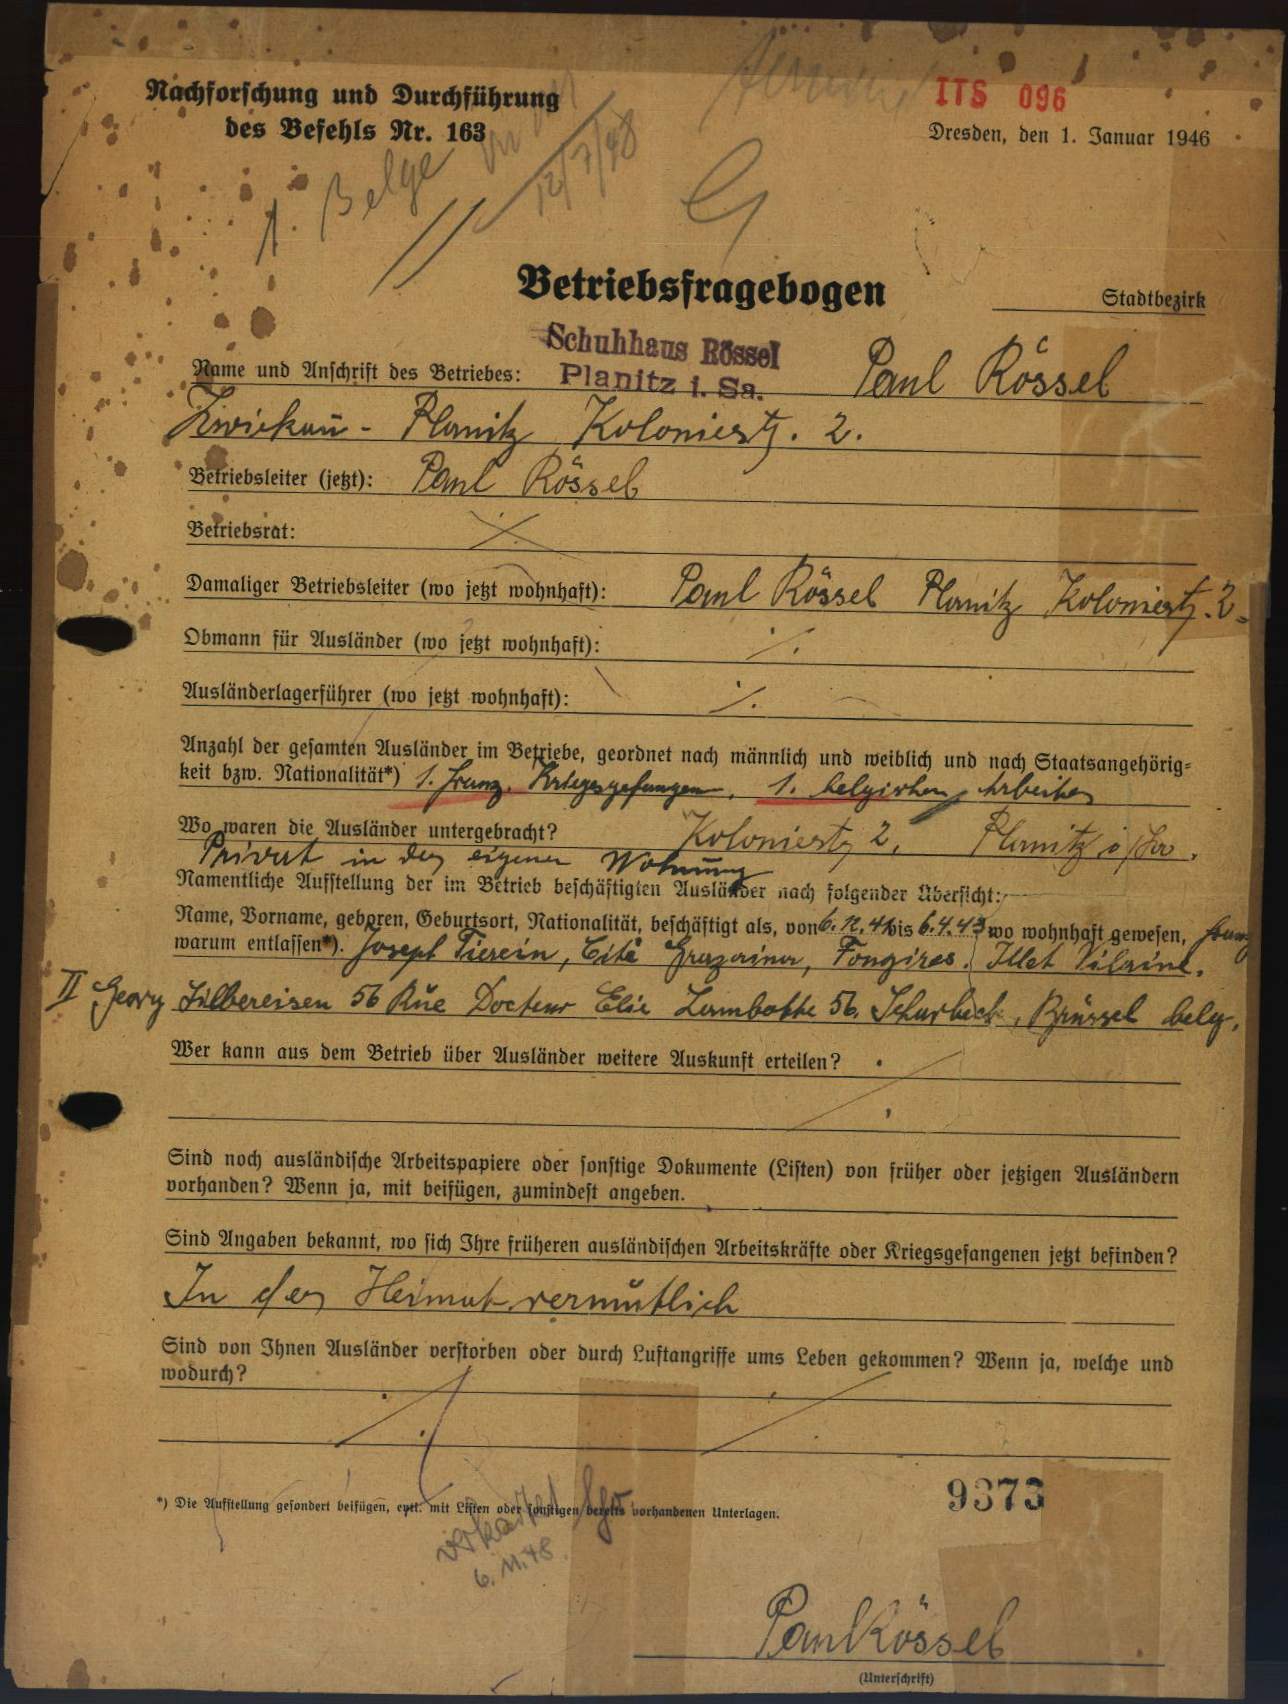 Nachforschung und Durchführung
des Befehls Nr. 163
ITS 096
Dresden, den 1. Januar 1946
1. Belge
12/7/48
Betriebsfragebogen
Stadtbezirk
Schuhhaus Rössel
Planitz i. Sa.
Name und Anschrift des Betriebes: Paul Rössel
Zwickau - Planitz Koloniestr. 2.
Betriebsleiter (jetzt): Paul Rössel
Betriebsrat:
Damaliger Betriebsleiter (wo jetzt wohnhaft): Paul Rössel Planitz Koloniestr. 2.
Obmann für Ausländer (wo jetzt wohnhaft):
Ausländerlagerführer (wo jetzt wohnhaft):
Anzahl der gesamten Ausländer im Betriebe, geordnet nach männlich und weiblich und nach Staatsangehörig-
keit bzw. Nationalität*) 1. franz. Kriegsgefangen. 1. belgischen Arbeiter
Wo waren die Ausländer untergebracht? Koloniestr 2, Planitz i/Sa.
Privat in der eigenen Wohnung
Namentliche Aufstellung der im Betrieb beschäftigten Ausländer nach folgender Übersicht:
Name, Vorname, geboren, Geburtsort, Nationalität, beschäftigt als, von 6.12.41 bis 6.4.43 wo wohnhaft gewesen, franz
warum entlassen*). Joseph Tierein, Cité Grazaina, Fougires. Illet Vilaine.
II Georg Silbereisen 56 Rüe Docteur Elie Lambotte 56. Scharbeck, Brüssel belg.
Wer kann aus dem Betrieb über Ausländer weitere Auskunft erteilen?
Sind noch ausländische Arbeitspapiere oder sonstige Dokumente (Listen) von früher oder jetzigen Ausländern
vorhanden? Wenn ja, mit beifügen, zumindest angeben.
Sind Angaben bekannt, wo sich Ihre früheren ausländischen Arbeitskräfte oder Kriegsgefangenen jetzt befinden?
In der Heimat vermütlich
Sind von Ihnen Ausländer verstorben oder durch Luftangriffe ums Leben gekommen? Wenn ja, welche und
wodurch?
9373
*) Die Aufstellung gesondert beifügen, evtl. mit Listen oder sonstigen bereits vorhandenen Unterlagen.
verkartet
6.11.48.
Paul Rössel
(Unterschrift)